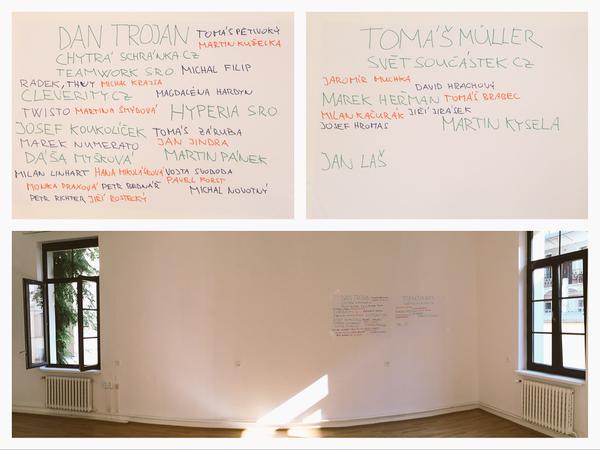 DAN TROJAN TOMÁŠ PĚTIVOKÝ
MARTIN KUŽELKA
CHYTRÁ SCHRÁNKA CZ
TEAMWORK SRO MICHAL FILIP
RADEK, THUY MICHAL KRAJSA
CLEVERITY CZ MAGDALÉNA HARDYN
TWISTO MARTINA ŠMÝDOVÁ HYPERIA SRO
JOSEF KOUKOLÍČEK TOMÁŠ ZÁRUBA
MAREK NUMERATO JAN JINDRA
DÁŠA MYŠKOVÁ MARTIN PÁNEK
MILAN LINHART HANA MIKULÁŠKOVÁ VOJTA SVOBODA
MONIKA PRAXOVÁ PETR BEDNÁŘ PAVEL HORST
MICHAL NOVOTNÝ
PETR RICHTER JIŘÍ ROSTECKÝ
TOMÁŠ MÜLLER
SVĚT SOUČÁSTEK CZ
JAROMÍR MUCHKA
DAVID HRACHOVÝ
MAREK HEŘMAN TOMÁŠ BRABEC
MILAN KAČURÁK JIŘÍ JIRÁSEK
JOSEF HROMAS MARTIN KYSELA
JAN LAŠ